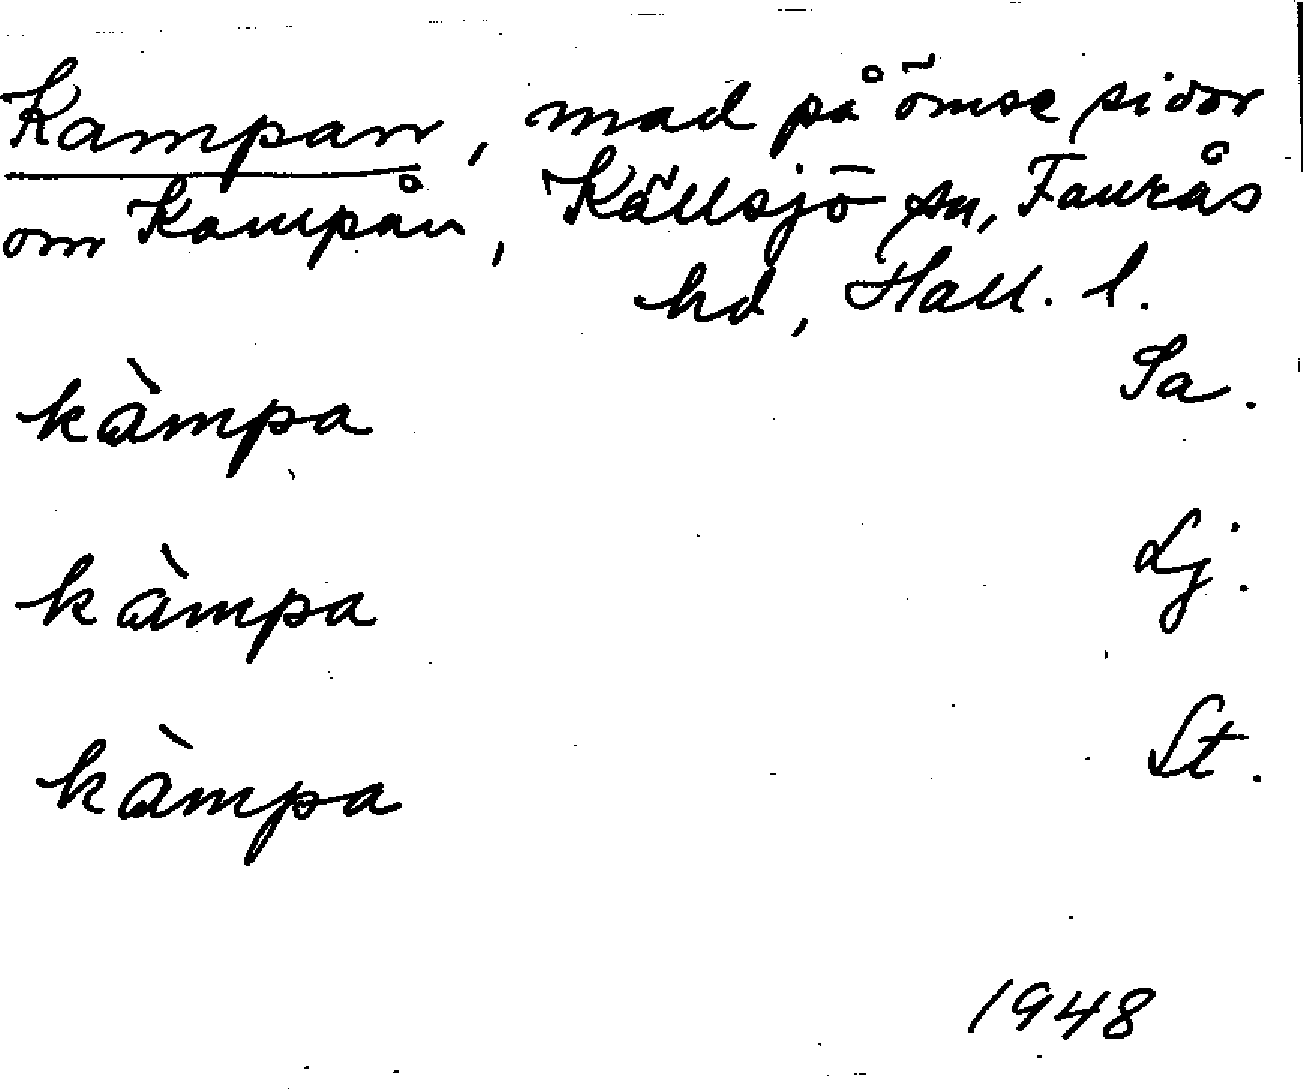 Kampan, mad på ömse sidor
om Kampån, Källsjö sn, Faurås
hd, Hall. l.
Sa.
kàmpa
Lj.
kàmpa
St.
kàmpa
1948